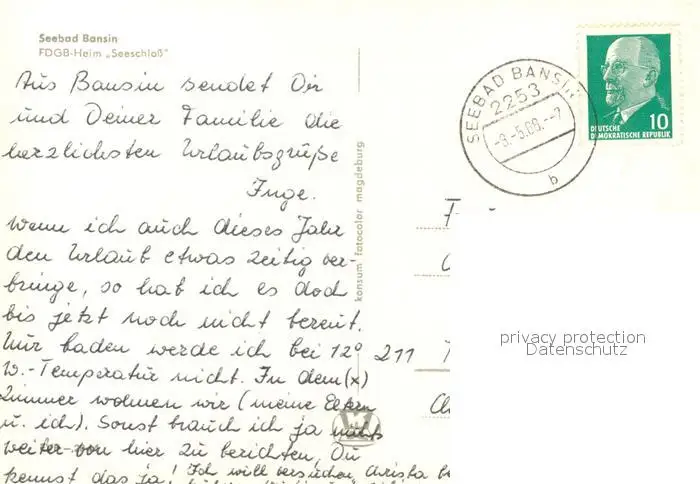 Seebad Bansin
FDGB-Heim „Seeschloß"
Aus Bansin sendet Dir
und Deiner Familie die
herzlichsten Urlaubsgrüße
Inge.
Wenn ich auch dieses Jahr
den Urlaub etwas zeitig ver-
bringe, so hab ich es doch
bis jetzt noch nicht bereut.
Nur baden werde ich bei 12°
W.-Temperatur nicht. In dem (x)
Zimmer wohnen wir (meine Eltern
u. ich). Sonst brauch ich ja nichts
weiter von hier zu berichten, Du
kennst das ja! Ich will versuchen, Christa
konsum fotocolor magdeburg
SEEBAD BANSIN
2253
b
10
DEUTSCHE
DEMOKRATISCHE REPUBLIK
211
privacy protection
Datenschutz